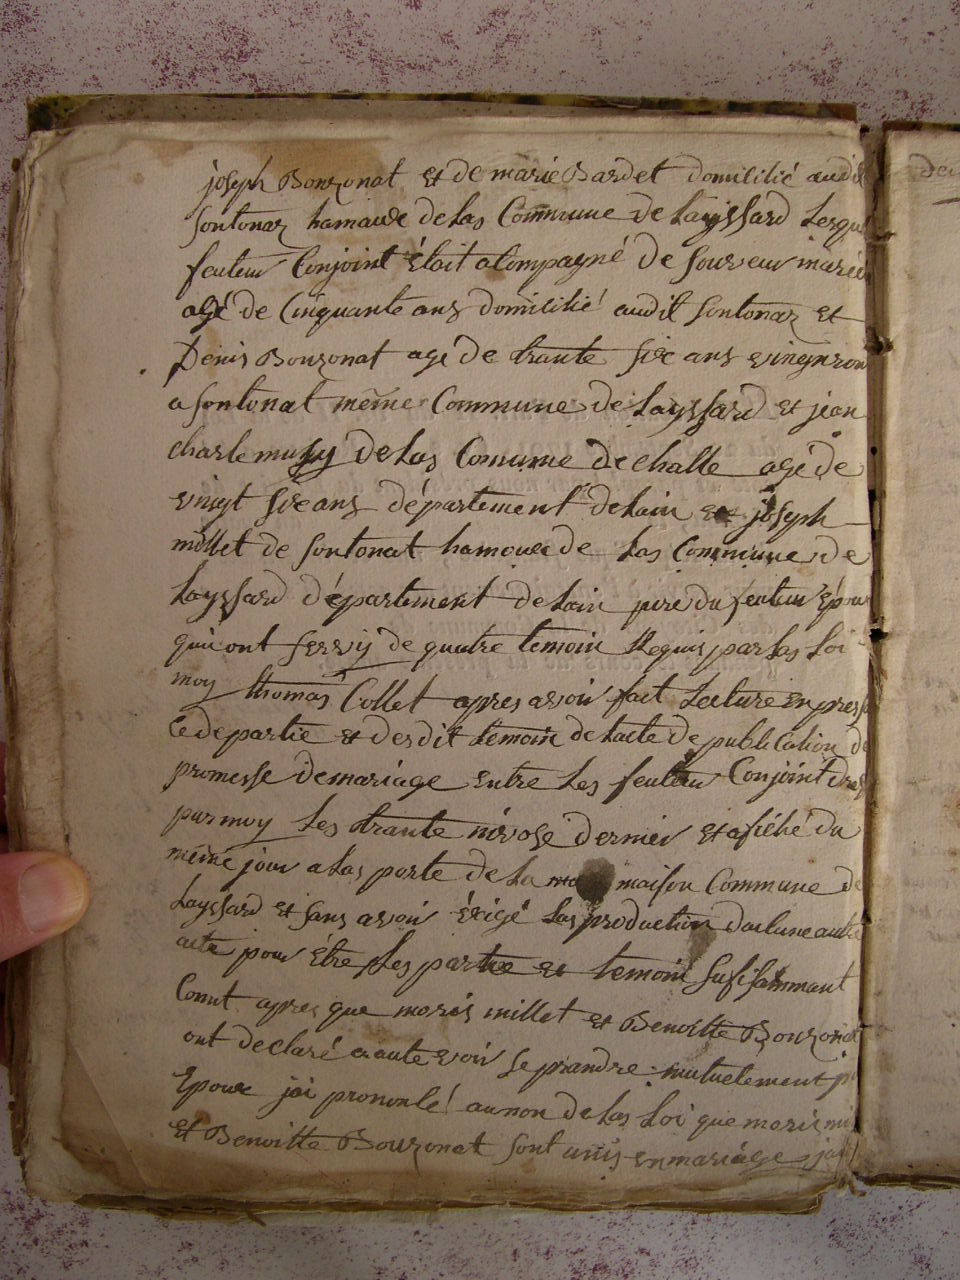 joseph Bouzonat et de marie Bardet domicilié audit
Sontonaz hamaux de las Commune de Layssard Lesque
feuteur Conjoint était acompagné de
agé de Cinquante ans domicilié audit Sontonaz et
Denis Bouzonat agé de trante six ans vingnron
a Sontonat même Commune de Layssard et jean
charle musy de las Comume de challe agé de
vingt six ans département delain et joseph
millet de Sontonat hamoux de las Commune de
Layssard département de Lain pere du feuteur Epoux
qui ont servy de quatre temoin Requis par las Loi
moy thomas Collet apres avoir fait Lecture en presa
Ce de partie et desdit temoin de lacte de publication de
promesse de mariage entre Les feuteur Conjoint dres
par moy Les trante nivose dernier et afiché du
même jour a las porte de la maison Commune de
Layssard et sans avoir éxigé las production daucune autre
acte pour être Les partie et temoin sufisammant
Conut apres que moris millet et Benoitte Bouzonat
ont declaré a aute voix se prandre mutuelement p
Epoux jai prononcé au non de las Loi que moris mi
et Benoitte Bouzonat sont unis en mariage jai